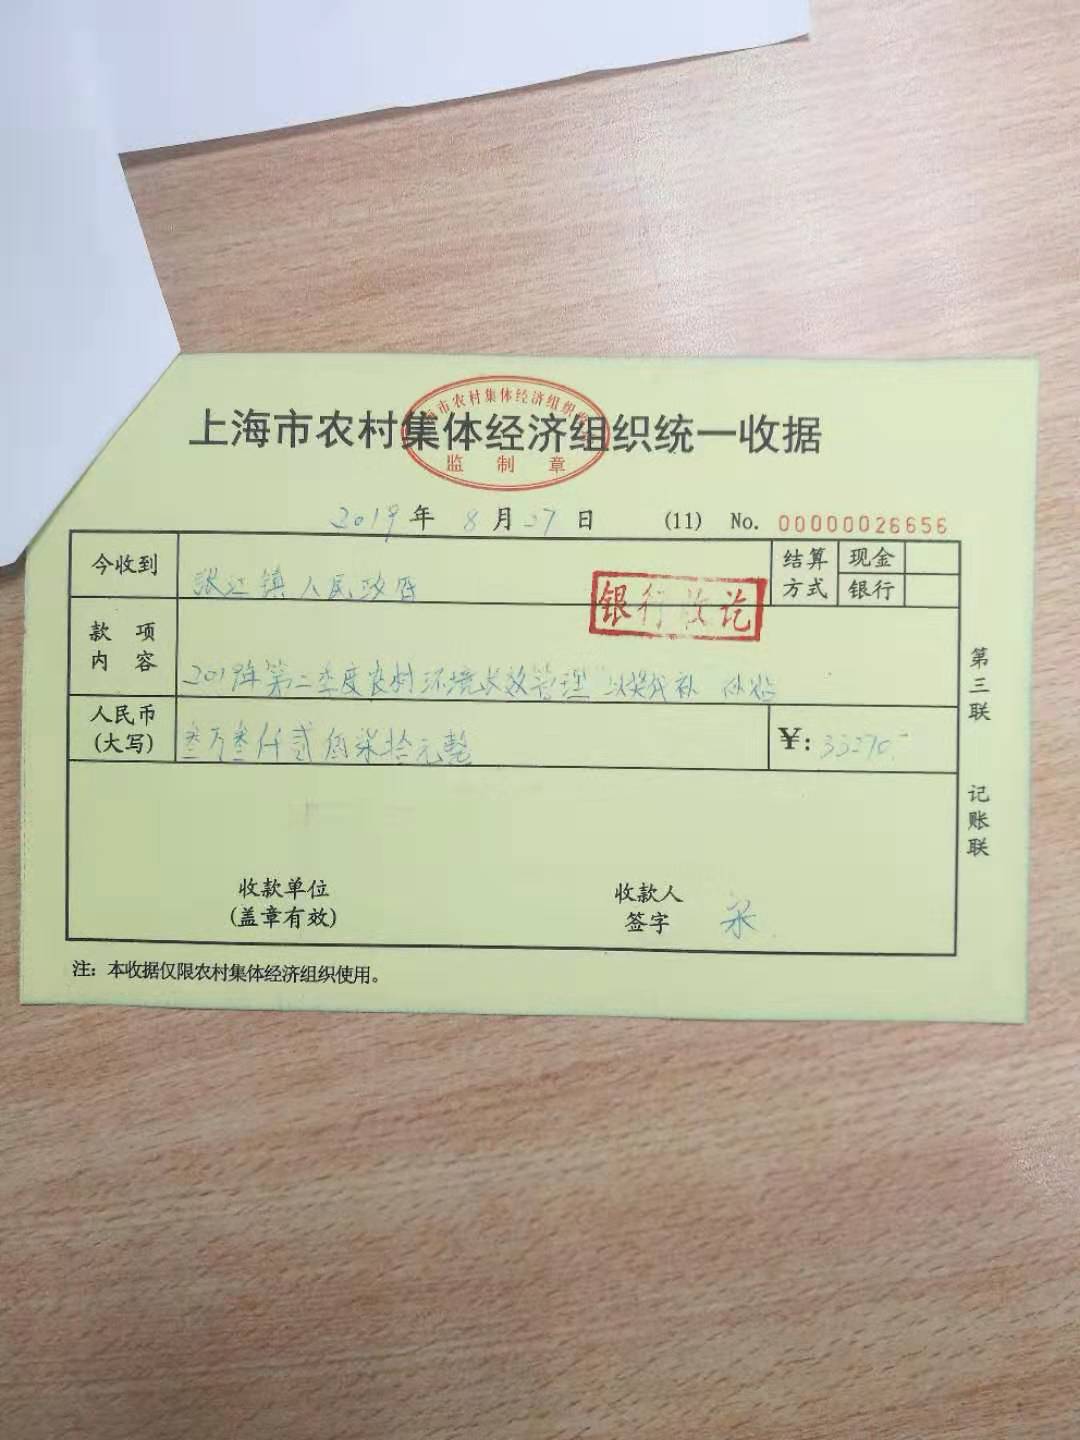 上海市农村集体经济组织统一收据
市农村集体经济组织收
监制章
2019年 8月27日 (11) No. 00000026656
今收到 张江镇人民政府
结算方式 现金
银行
银行收讫
款项内容 2019年第二季度农村环境长效管理"以奖代补
人民币(大写) 叁万叁仟贰佰柒拾元整 ¥: 33270.-
收款单位 收款人
(盖章有效) 签字
注：本收据仅限农村集体经济组织使用。
第三联
记账联